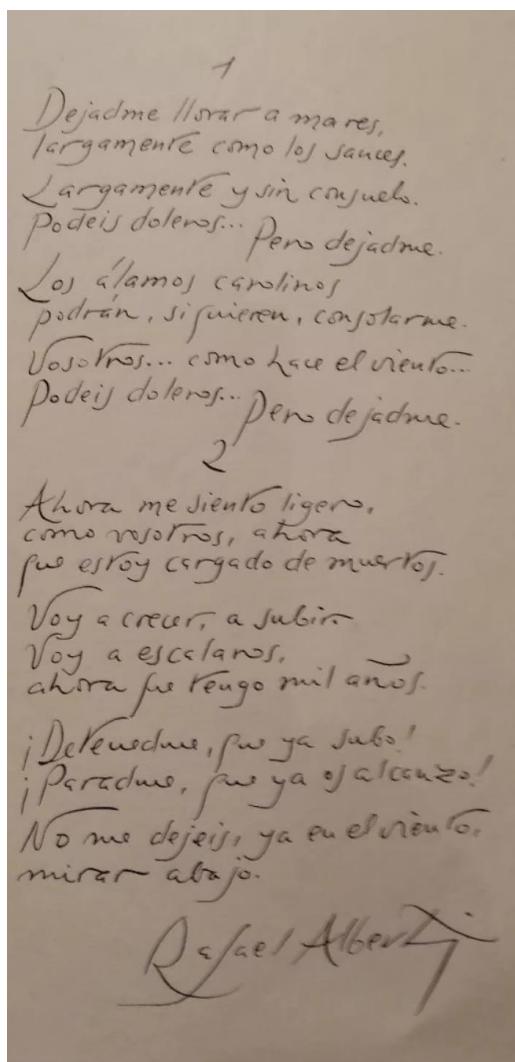 1
Dejadme llorar a mares,
largamente como los sauces.
Largamente y sin consuelo.
Podeis doleros...
Pero dejadme.
Los álamos carolinos
podrán, si quieren, consolarme.
Vosotros... como hace el viento...
Podeis doleros...
Pero dejadme.
2
Ahora me siento ligero,
como vosotros, ahora
que estoy cargado de muertos.
Voy a crecer, a subir.
Voy a escalaros,
ahora que tengo mil años.
¡Detenedme, que ya subo!
¡Paradme, que ya os alcanzo!
No me dejeis, ya en el viento,
mirar abajo.
Rafael Alberti